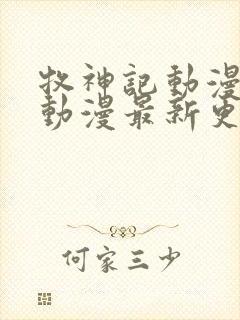 牧神記動漫
動漫最新更
何家三少